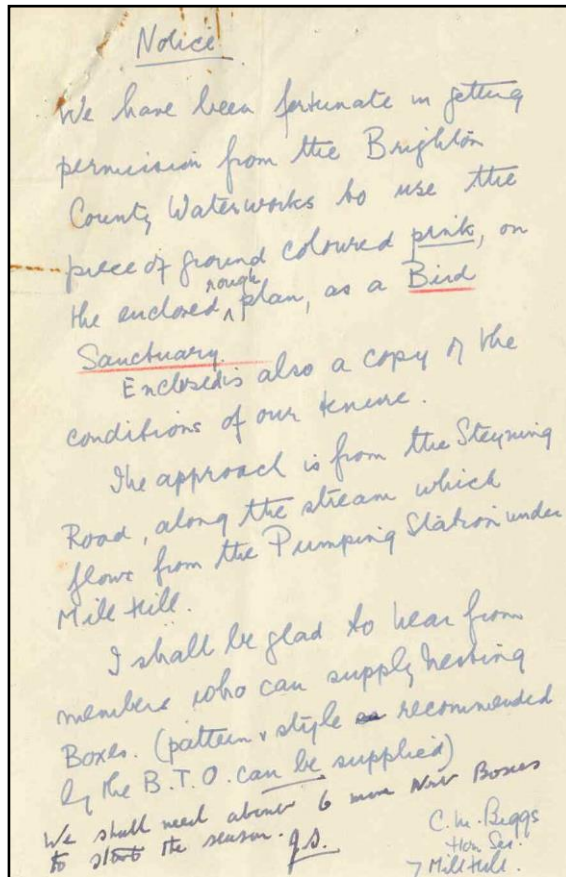 Notice
We have been fortunate in getting
permission from the Brighton
County Waterworks to use the
piece of ground coloured pink, on
the enclosed rough plan, as a Bird
Sanctuary.
Enclosed is also a copy of the
conditions of our tenure.
The approach is from the Steyning
Road, along the stream which
flows from the Pumping Station under
Mill Hill.
I shall be glad to hear from
members who can supply Nesting
Boxes. (pattern & style as recommended
by the B.T.O. can be supplied)
We shall need about 6 more Nest Boxes
to start the season. J.S.
C. M. Biggs
Hon Sec.
7 Mill Hill.